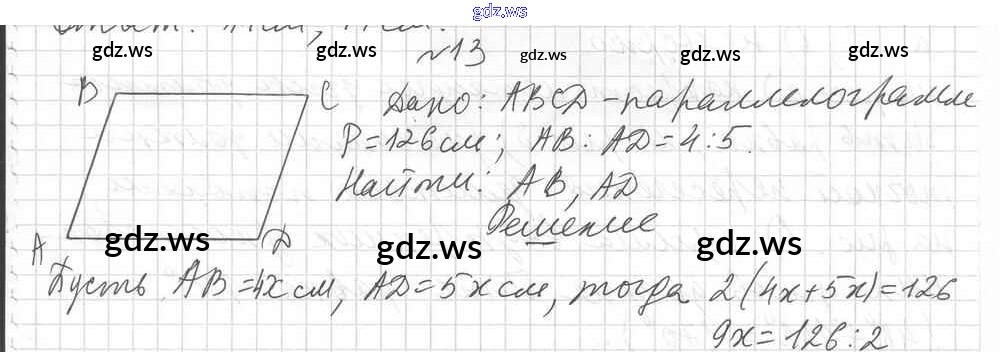 gdz.ws
Ответ:
gdz.ws gdz.ws gdz.ws gdz.ws gdz.ws
№13
B C Дано: ABCD - параллелограмм
P = 126 см; AB : AD = 4:5.
Найти: AB, AD
Решение
A D
gdz.ws gdz.ws gdz.ws
Пусть AB = 4x см, AD = 5x см, тогда 2(4x+5x) = 126
9x = 126:2